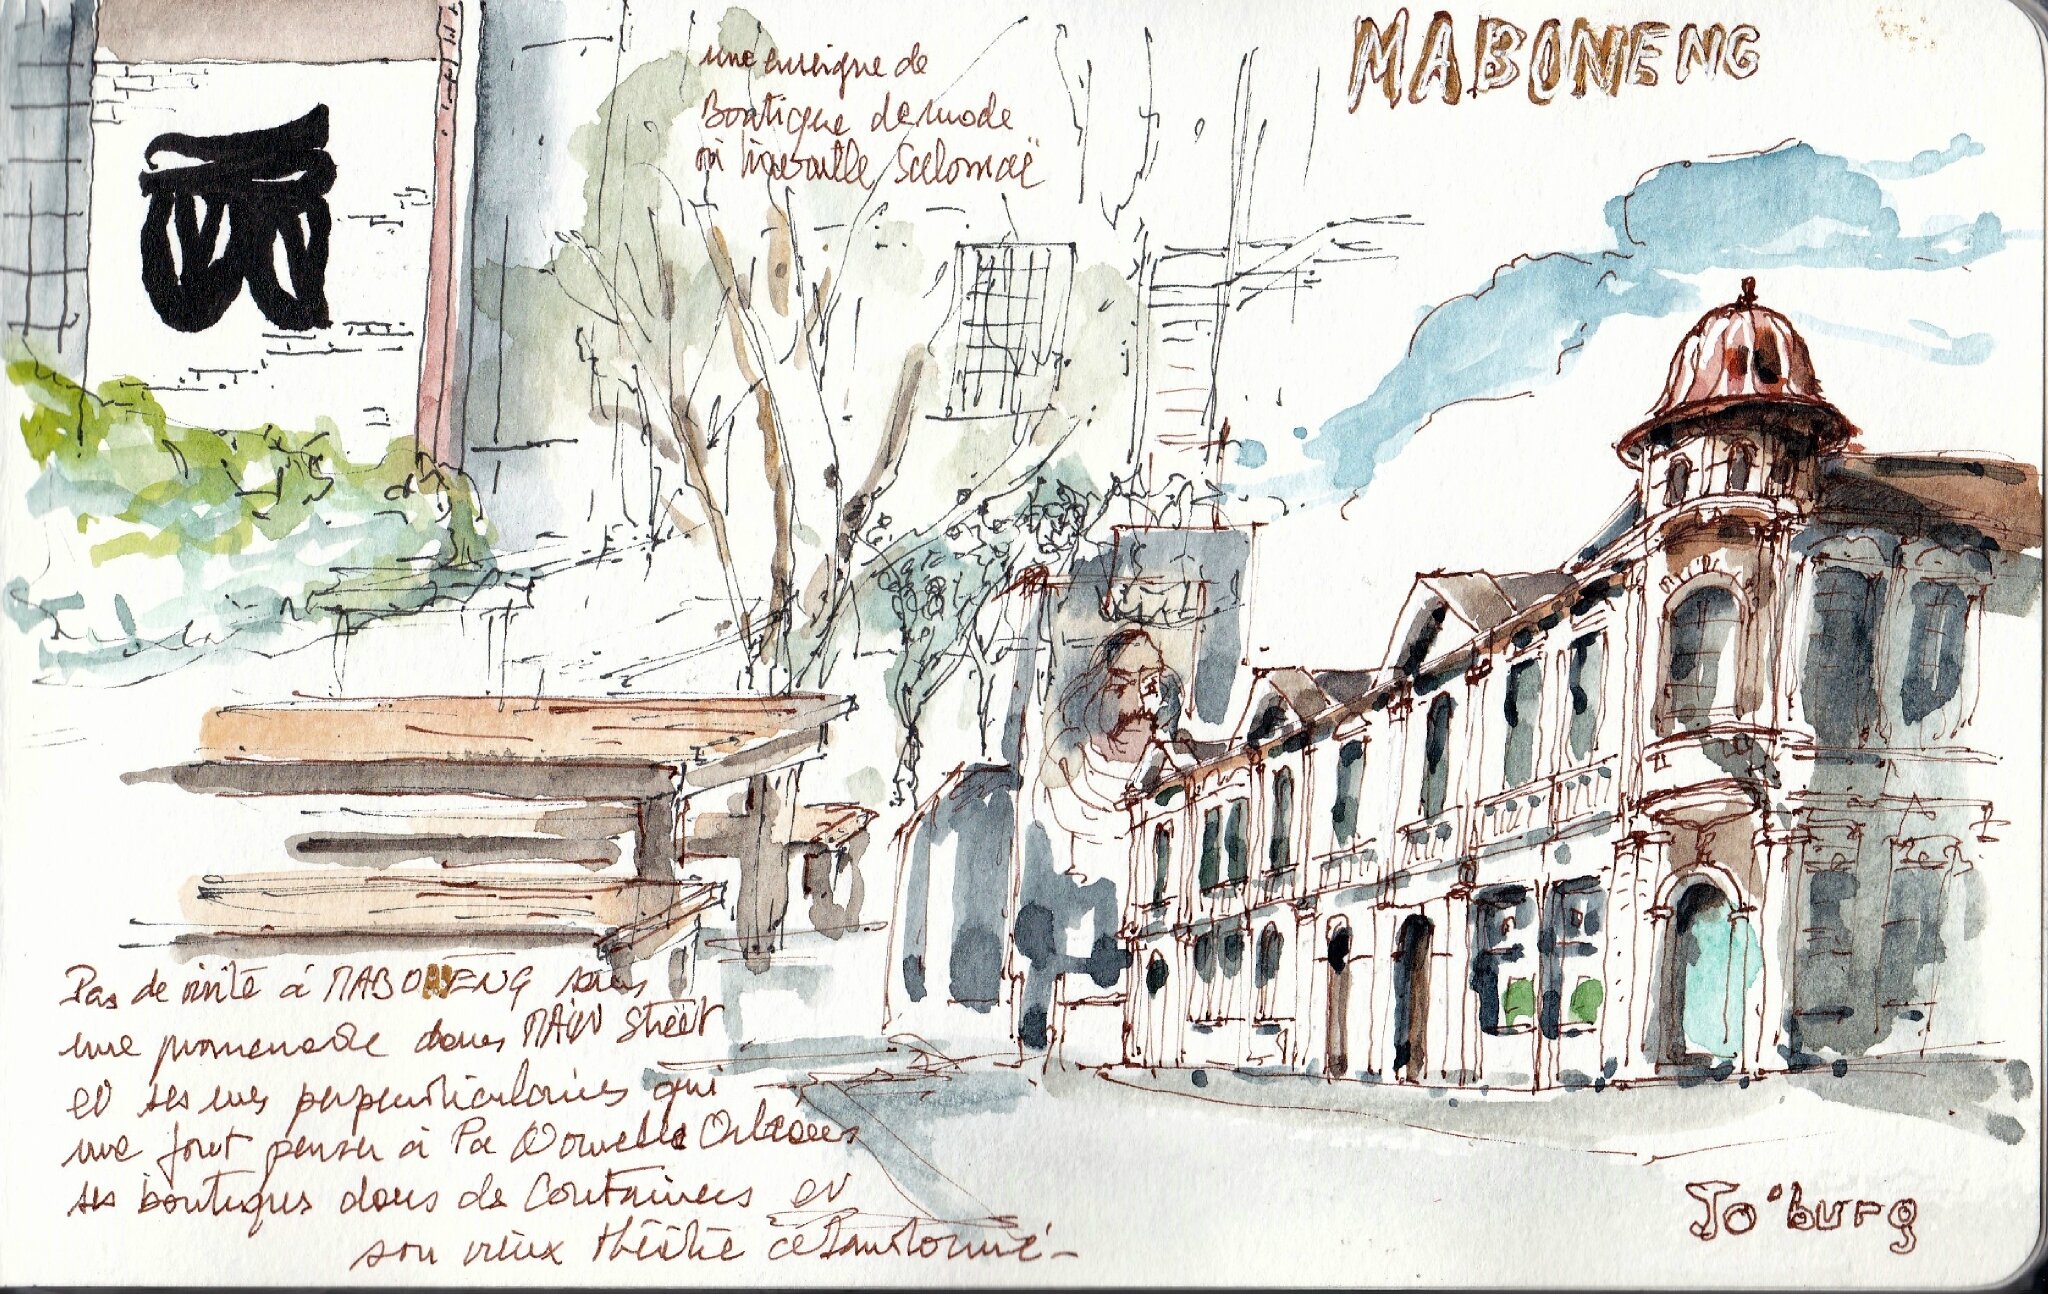 MABONENG
une enseigne de
Boutique de mode
où travaille Salomaë
Pas de visite à MABONENG sans
une promenade dans MAIN Street
et ses rues perpendiculaires qui
me font penser à la Nouvelle Orléans
ses boutiques dans des Containers et
son vieux théâtre abandonné
Jo'burg